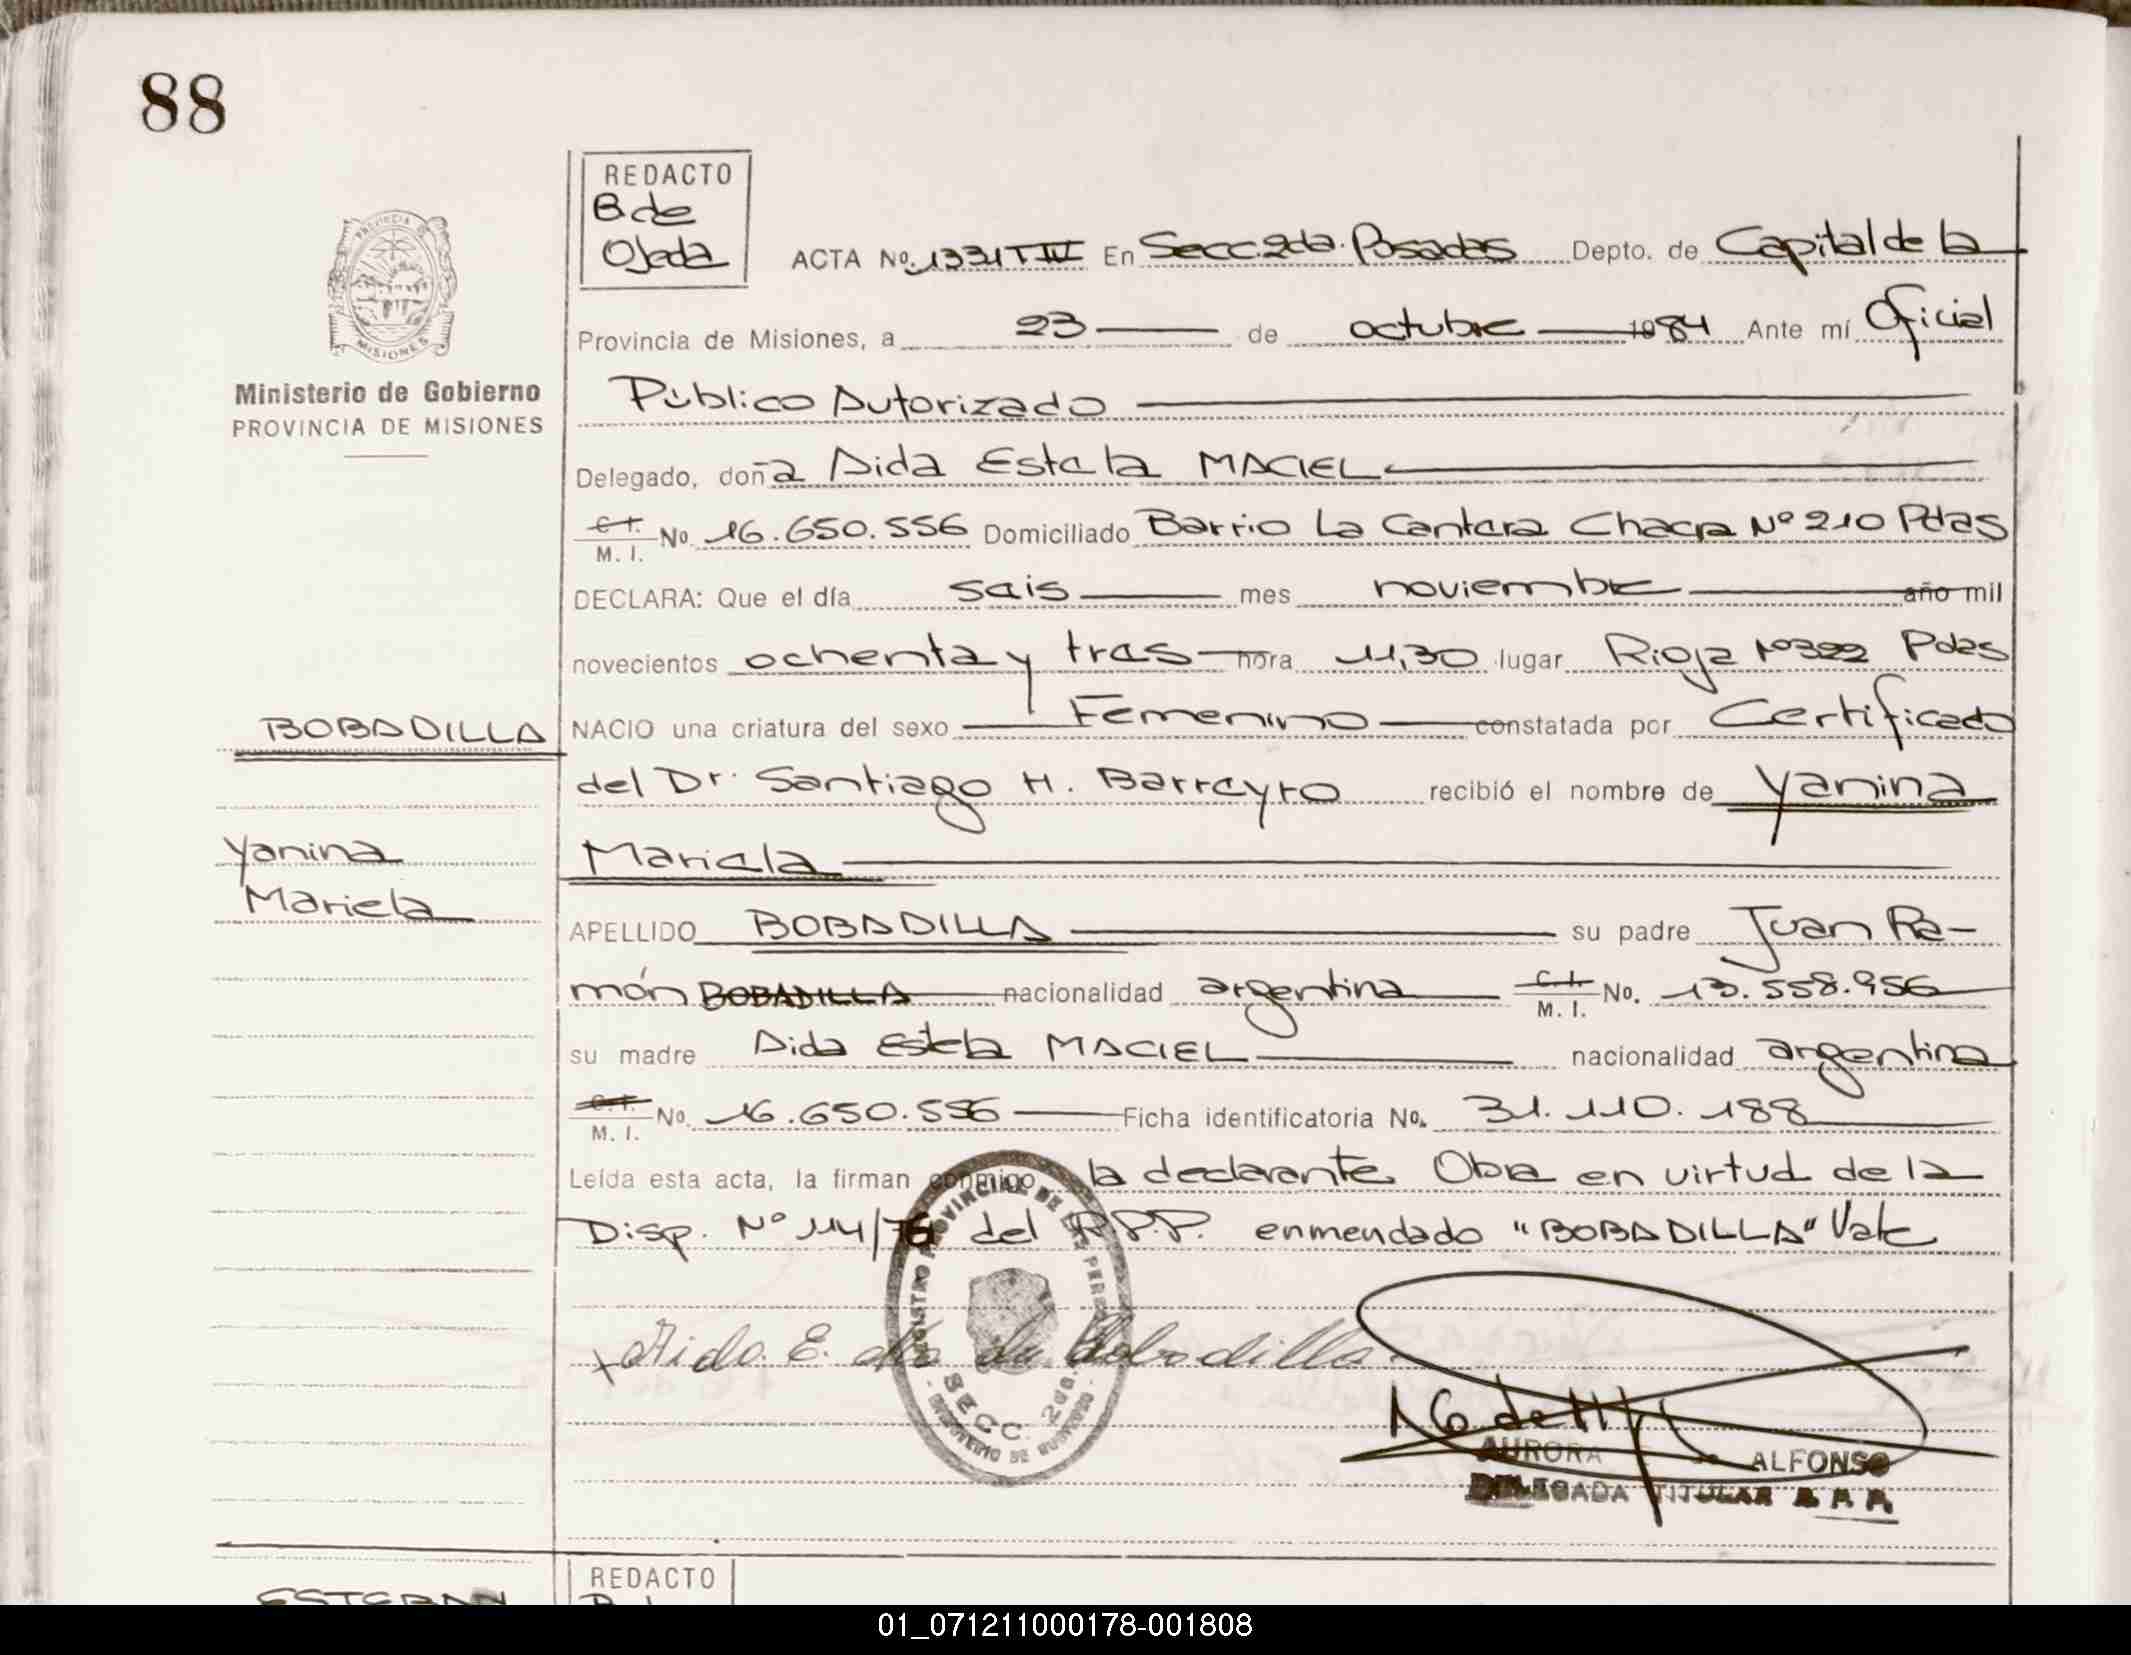 88
REDACTO
B. de
Ojeda
ACTA No. 1331 T III En Secc. 2da. Posadas Depto. de Capital de la
Provincia de Misiones, a 23 de octubre 1984 Ante mí Oficial
Público Autorizado
Delegado, doña Aida Estela MACIEL
C.I. M. I. No. 16.650.556 Domiciliado Barrio La Cantera Chacra Nº 210 Pdas
DECLARA: Que el día seis mes noviembre año mil
novecientos ochenta y tres hora 11,30 lugar Rioja Nº 322 Pdas
NACIO una criatura del sexo Femenino constatada por Certificado
del Dr. Santiago H. Barreyro recibió el nombre de Yanina
Mariela
APELLIDO BOBADILLA su padre Juan Ra-
món BOBADILLA nacionalidad argentina C.I. M. I. No. 13.558.956
su madre Aida Estela MACIEL nacionalidad argentina
C.I. M. I. No. 16.650.556 Ficha identificatoria No. 31.110.188
Leída esta acta, la firman conmigo la declarante. Obra en virtud de la
Disp. Nº 114/76 del R.P.P. enmendado "BOBADILLA" Vale
Aida E. de Bobadilla
AURORA ALFONSO
DELEGADA TITULAR R. P. P.
REGISTRO PROVINCIAL DE LAS PERS
SECC. 2da.
MINISTERIO DE GOBIERNO
PROVINCIA DE
MISIONES
Ministerio de Gobierno
PROVINCIA DE MISIONES
BOBADILLA
Yanina
Mariela
ESTEBAN
REDACTO
01_071211000178-001808